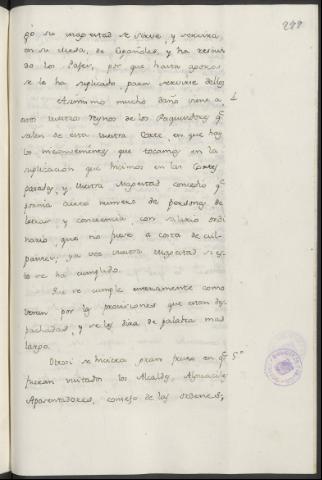 299
 su magestad se sirve, y servira
en su cassa, de Españoles, y ha
 los , por que hasta agora
se le ha suplicado, para servirse dellos
Assimismo mucho daño viene a 4
estos vuestros Reynos de los Pesquisidores q̃
salen de esta vuestra Corte, en que hay
los inconvenientes que tocamos en la
suplicacion que hicimos en las Cortes
pasadas, y vuestra Magestad concedio q̃
 cierto numero de personas de
letras y conciencia, con salario ordi
nario, que no fuese a costa de cul-
pantes, ya que vuestra Magestad
 se ha cumplido.
Que se cumple enteramente como
veran por las provisiones que estan des
pachadas, y se les dira de palabra mas
largo.
Otrosi se hiciera gran fruto en q̃ 5º
fuesen visitados los Alcaldes, Alguaciles
Aposentadores, consejo de las ordenes,